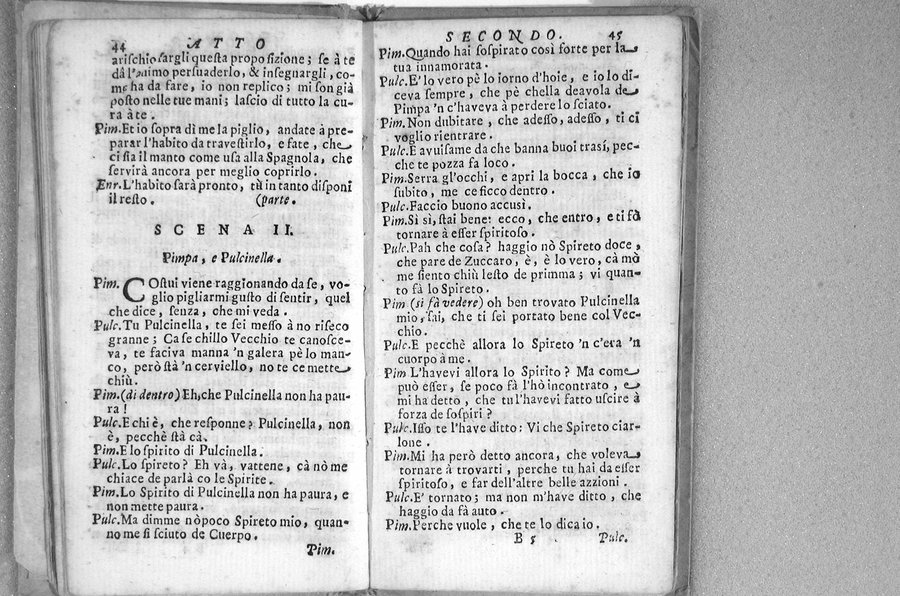 44 ATTO
arischio fargli questa proposizione; se à te
dà l'animo persuaderlo, & insegnargli, co-
me ha da fare, io non replico; mi son già
posto nelle tue mani; lascio di tutto la cu-
ra à te.
Pim. Et io sopra dì me la piglio, andate à pre-
parar l'habito da travestirlo, e fate, che
ci sia il manto come usa alla Spagnola, che
servirà ancora per meglio coprirlo.
Enr. L'habito sarà pronto, tù in tanto disponi
il resto. (parte.
SCENA II.
Pimpa, e Pulcinella.
Pim. COstui viene raggionando da se, vo-
glio pigliarmi gusto di sentir, quel
che dice, senza, che mi veda.
Pulc. Tu Pulcinella, te sei messo à no riseco
granne; Ca se chillo Vecchio te canosce-
va, te faciva manna 'n galera pè lo man-
co, però stà 'n cerviello, no te ce mette
chiù.
Pim. (di dentro) Eh, che Pulcinella non ha pau-
ra!
Pulc. E chi è, che responne? Pulcinella, non
è, pecchè stà cà.
Pim. E lo spirito di Pulcinella.
Pulc. Lo spireto? Eh và, vattene, cà nò me
chiace de parlà co le Spirite.
Pim. Lo Spirito di Pulcinella non ha paura, e
non mette paura.
Pulc. Ma dimme nò poco Spireto mio, quan-
no me si sciuto de Cuerpo.
Pim.
SECONDO. 45
Pim. Quando hai sospirato così forte per la
tua innamorata.
Pulc. E' lo vero pè lo iorno d'hoie, e io lo di-
ceva sempre, che pè chella deavola de
Pimpa 'n c'haveva à perdere lo sciato.
Pim. Non dubitare, che adesso, adesso, ti ci
voglio rientrare.
Pulc. E avuisame da che banna buoi trasí, pec-
che te pozza fa loco.
Pim. Serra gl'occhi, e apri la bocca, che io
subito, me ce ficco dentro.
Pulc. Faccio buono accusì.
Pim. Sì sì, stai bene: ecco, che entro, e ti fò
tornare à esser spiritoso.
Pulc. Pah che cosa? haggio nò Spireto doce,
che pare de Zuccaro, è, è lo vero, cà mò
me siento chiù lesto de primma; vi quan-
to fà lo Spireto.
Pim (si fà vedere) oh ben trovato Pulcinella
mio, sai, che ti sei portato bene col Vec-
chio.
Pulc. E pecchè allora lo Spireto 'n c'era 'n
cuorpo à me.
Pim L'havevi allora lo Spirito? Ma come
può esser, se poco fà l'hò incontrato, e
mi ha detto, che tu l'havevi fatto uscire à
forza de sospiri?
Pulc. Isso te l'have ditto: Vi che Spireto ciar-
lone.
Pim. Mi ha però detto ancora, che voleva
tornare à trovarti, perche tu hai da esser
spiritoso, e far dell'altre belle azzioni.
Pulc. E' tornato; ma non m'have ditto, che
haggio da fà auto.
Pim. Perche vuole, che te lo dica io.
B 5 Pulc.